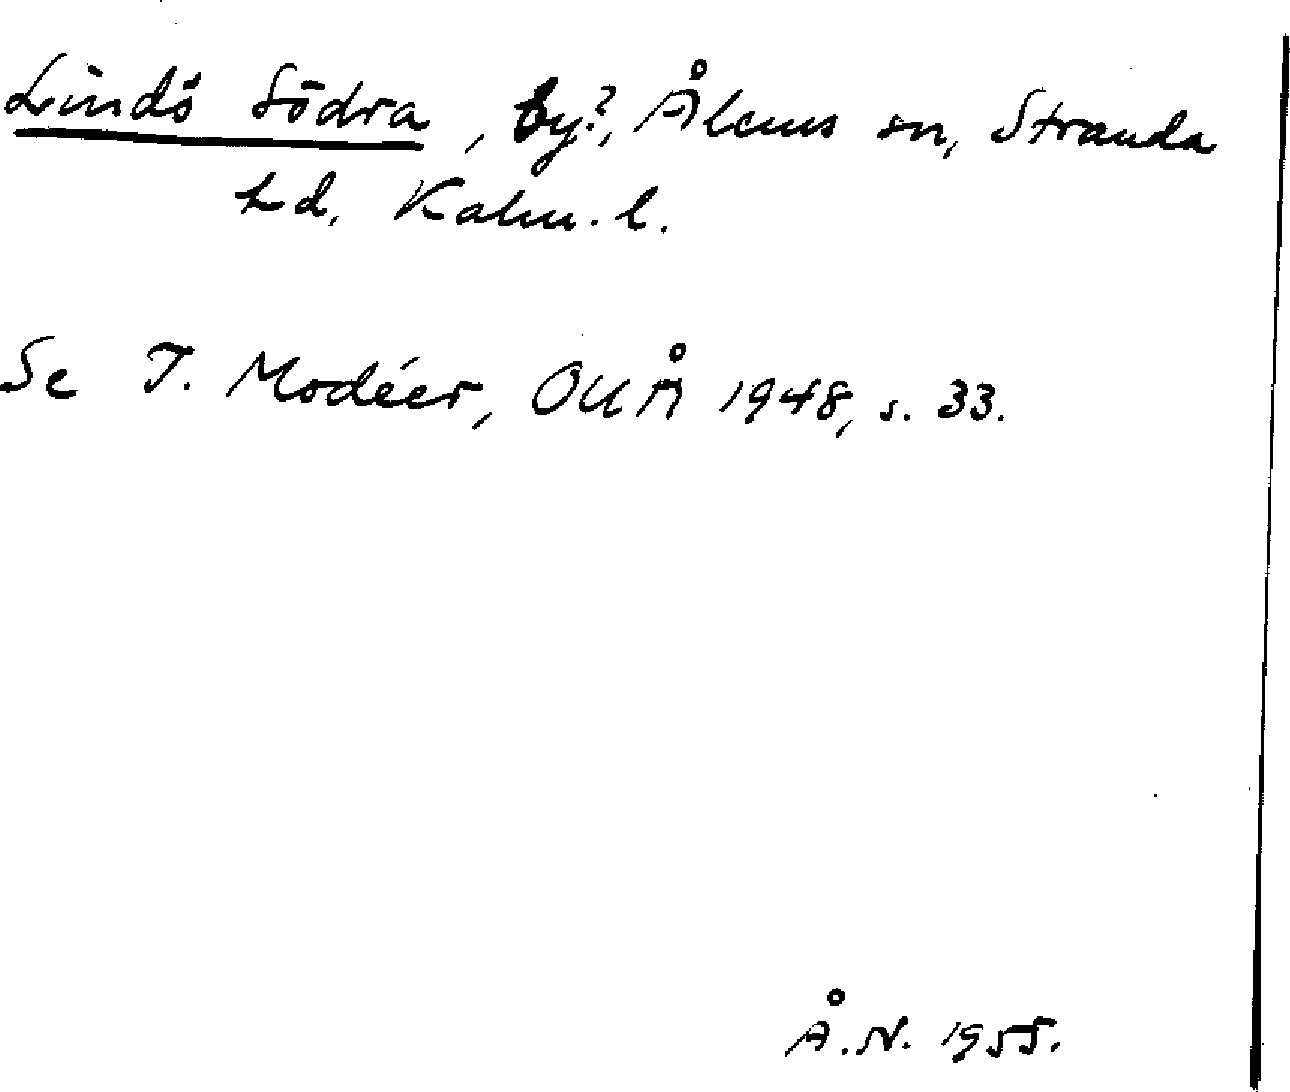 Lindö Södra, by?, Ålems sn, Stranda
hd, Kalm. l.
Se I. Modéer, OUÅ 1948, s. 33.
Å.N. 1955.